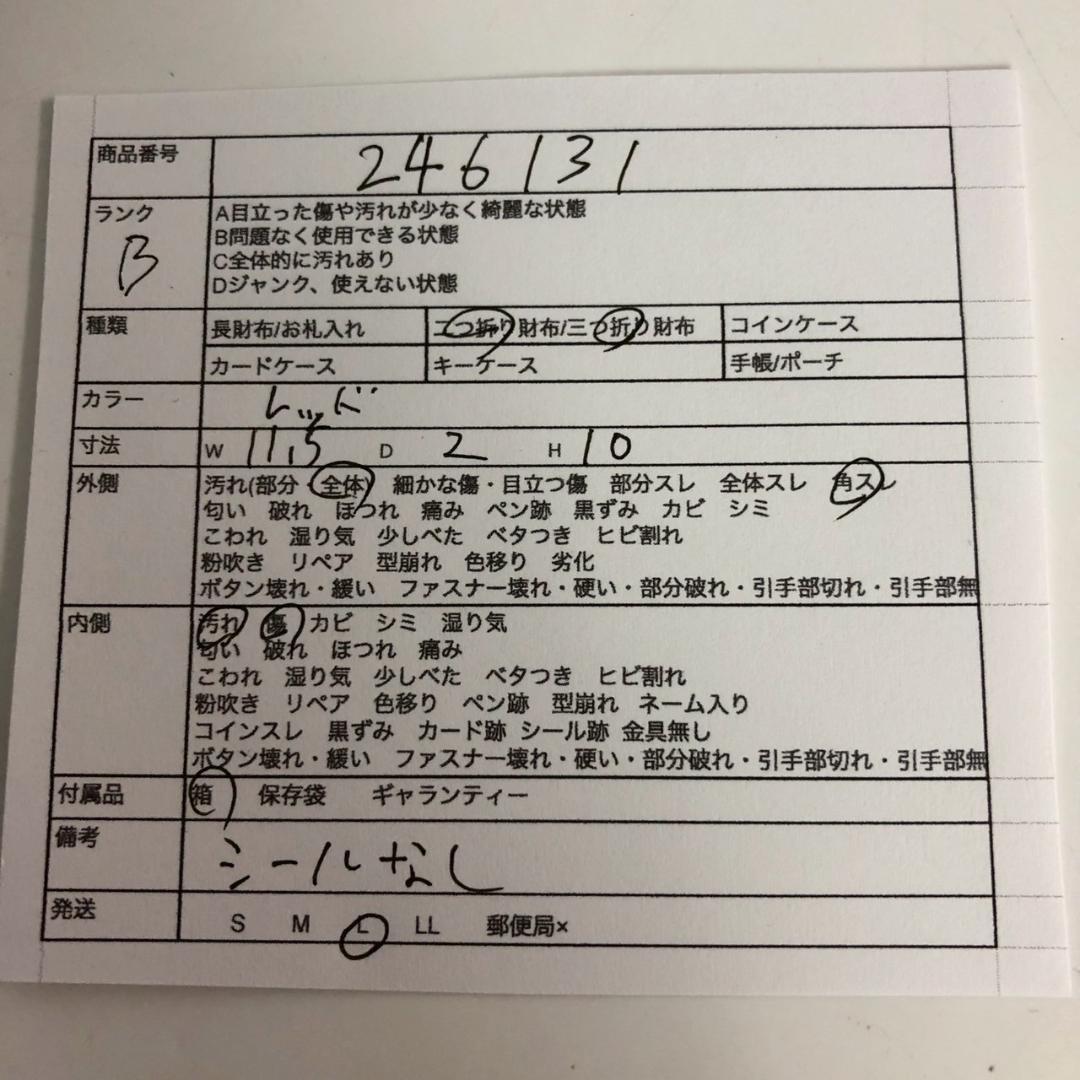 商品番号 246131
ランク B
A目立った傷や汚れが少なく綺麗な状態
B問題なく使用できる状態
C全体的に汚れあり
Dジャンク、使えない状態
種類 長財布/お札入れ 二つ折り財布/三つ折り財布 コインケース
カードケース キーケース 手帳/ポーチ
カラー レッド
寸法 W 11,5 D 2 H 10
外側 汚れ(部分・全体) 細かな傷・目立つ傷 部分スレ 全体スレ 角スレ
匂い 破れ ほつれ 痛み ペン跡 黒ずみ カビ シミ
こわれ 湿り気 少しべた ベタつき ヒビ割れ
粉吹き リペア 型崩れ 色移り 劣化
ボタン壊れ・緩い ファスナー壊れ・硬い・部分破れ・引手部切れ・引手部無
内側 汚れ 傷 カビ シミ 湿り気
匂い 破れ ほつれ 痛み
こわれ 湿り気 少しべた ベタつき ヒビ割れ
粉吹き リペア 色移り ペン跡 型崩れ ネーム入り
コインスレ 黒ずみ カード跡 シール跡 金具無し
ボタン壊れ・緩い ファスナー壊れ・硬い・部分破れ・引手部切れ・引手部無
付属品 箱 保存袋 ギャランティー
備考 シールなし
発送 S M L LL 郵便局×